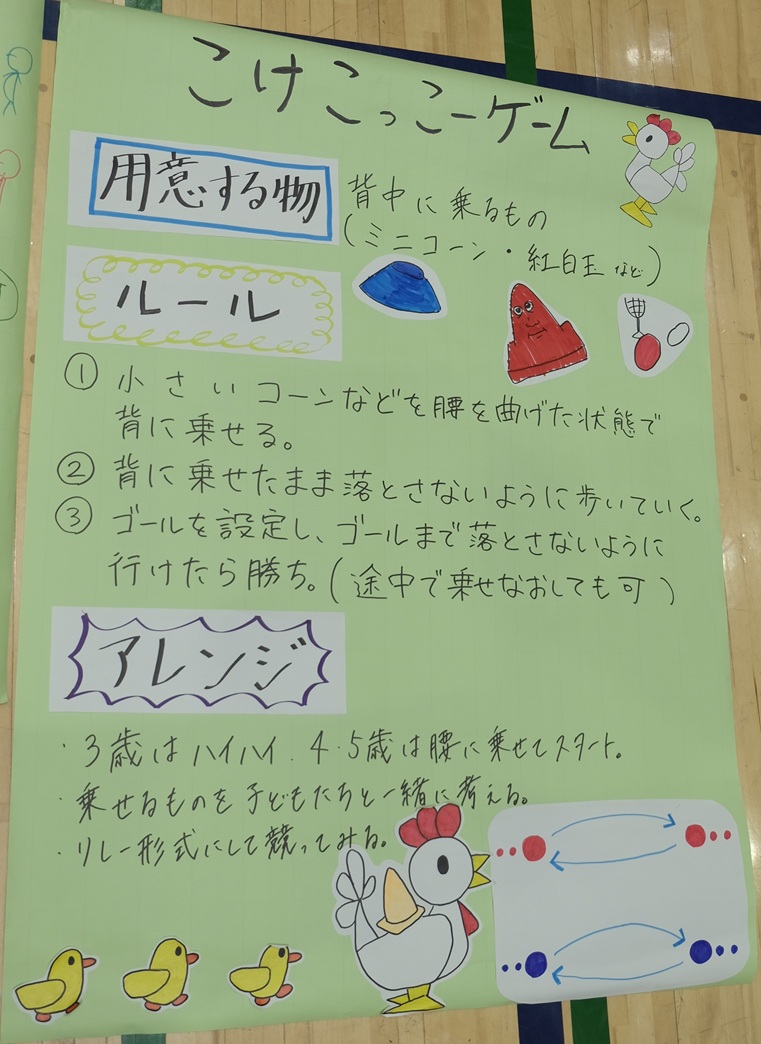 こけこっこーゲーム
用意する物
背中に乗るもの
(ミニコーン・紅白玉 など)
ルール
① 小さいコーンなどを腰を曲げた状態で
背に乗せる。
② 背に乗せたまま落とさないように歩いていく。
③ ゴールを設定し、ゴールまで落とさないように
行けたら勝ち。(途中で乗せなおしても可)
アレンジ
・3歳はハイハイ、4・5歳は腰に乗せてスタート。
・乗せるものを子どもたちと一緒に考える。
・リレー形式にして競ってみる。